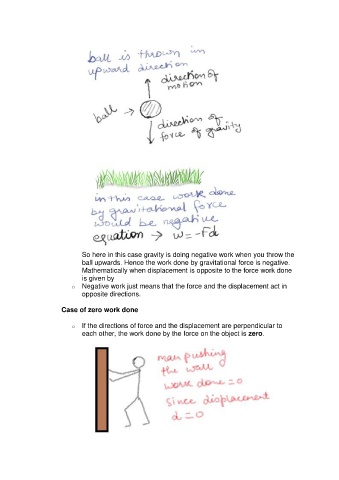 ball is thrown in
upward direction
direction of
motion
ball →
direction of
force of gravity
in this case work done
by gravitational force
would be negative
equation → w=-Fd
So here in this case gravity is doing negative work when you throw the
ball upwards. Hence the work done by gravitational force is negative.
Mathematically when displacement is opposite to the force work done
is given by
o Negative work just means that the force and the displacement act in
opposite directions.
Case of zero work done
o If the directions of force and the displacement are perpendicular to
each other, the work done by the force on the object is zero.
man pushing
the wall
work done = 0
since displacement
d = 0